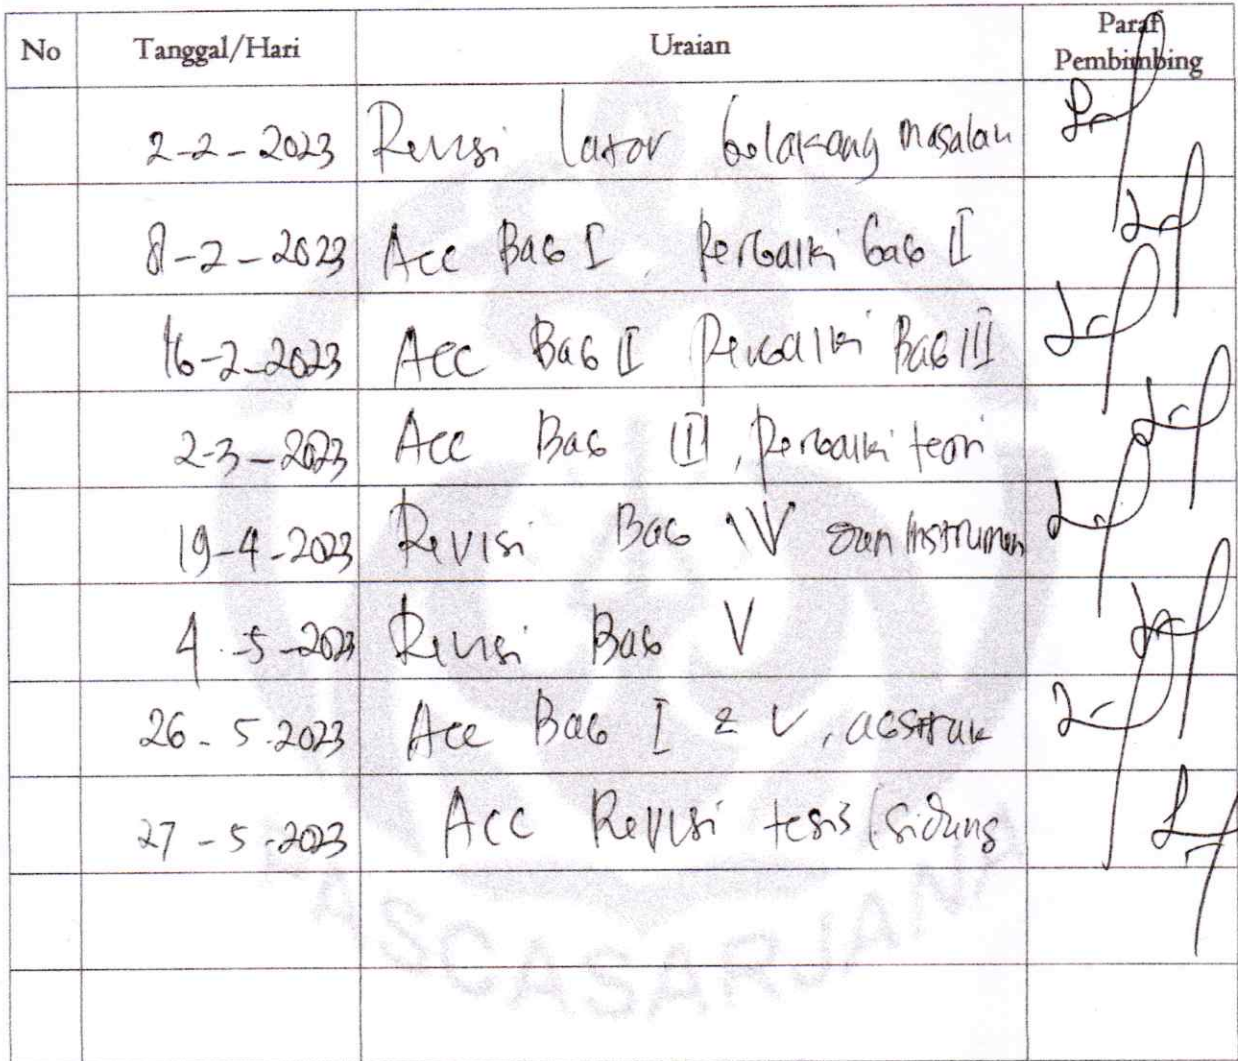 No Tanggal/Hari Uraian Paraf Pembimbing
2-2-2023 Revisi latar belakang masalah
8-2-2023 Acc Bab I, Perbaiki bab II
16-2-2023 Acc Bab II Perbaiki Bab III
2-3-2023 Acc Bab III, Perbaiki teori
19-4-2023 Revisi Bab IV dan Instrumen
4-5-2023 Revisi Bab V
26-5-2023 Acc Bab I & V, abstrak
27-5-2023 Acc Revisi tesis/sidang
PASCASARJANA